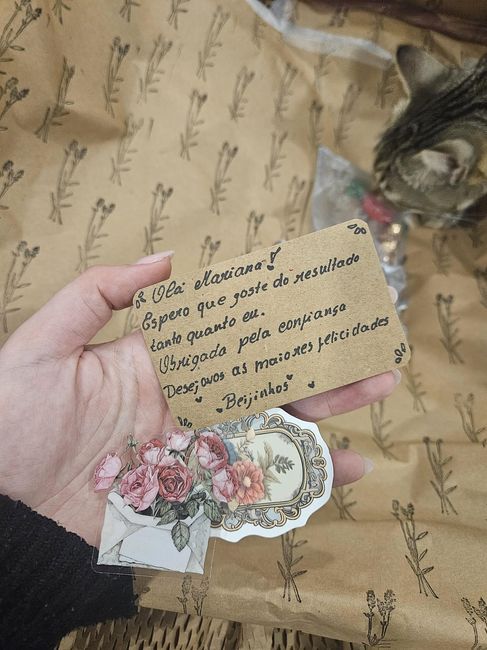 Olá Mariana!
Espero que goste do resultado
tanto quanto eu.
Obrigada pela confiança
Desejovos as maiores felicidades
Beijinhos